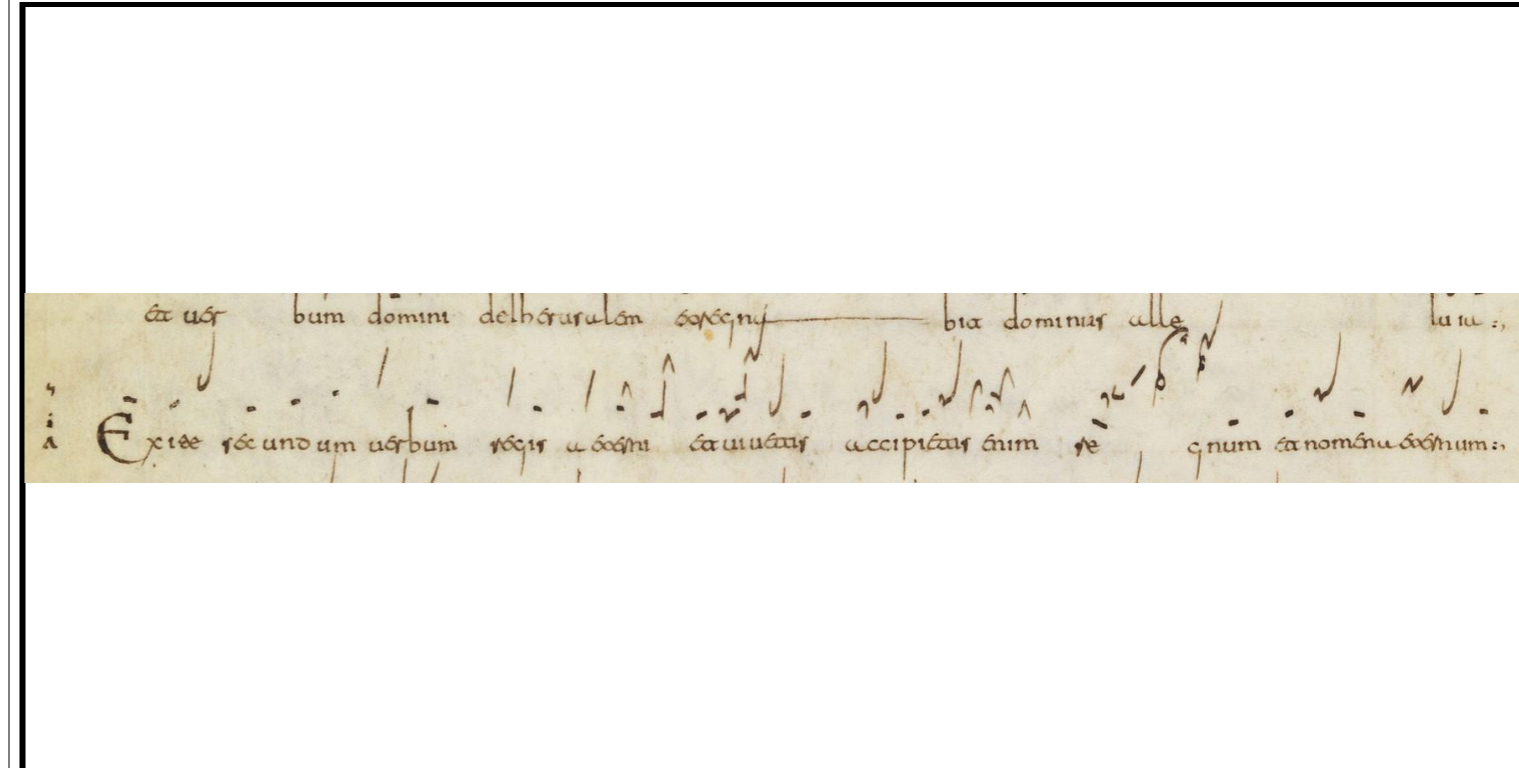 et uer bum domini de Iherusalem et regna bit dominus alle lu ia
Exite secundum uerbum regis aeterni et uiuetis accipietis enim re gnum et nomen aeternum